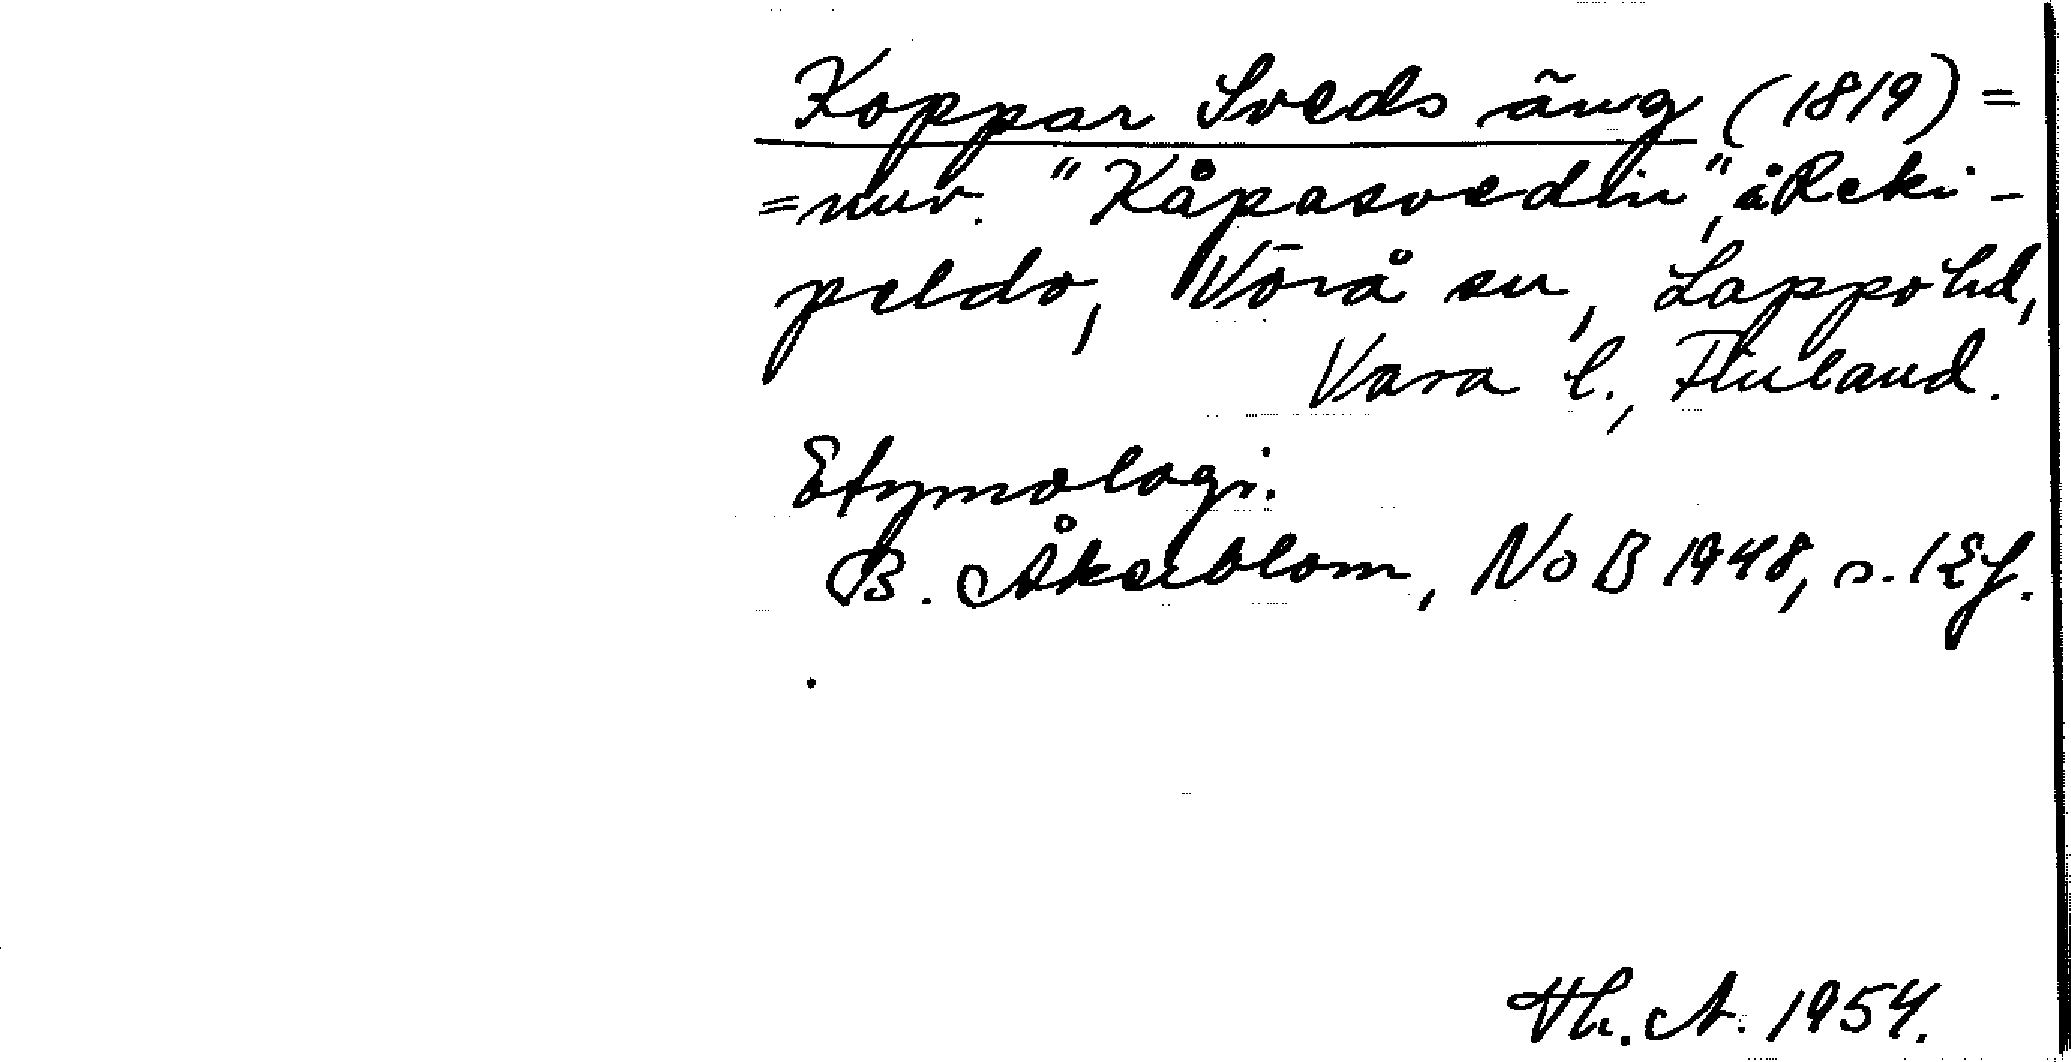 Koppar Sveds äng (1819) =
= nuv. "Kåpasvedin", å Reki-
peldo, Vörå sn, Lappo hd,
Vasa l., Finland.
Etymologi.
B. Åkerblom, NoB 1948, s. 12 f.
Th. A. 1954.